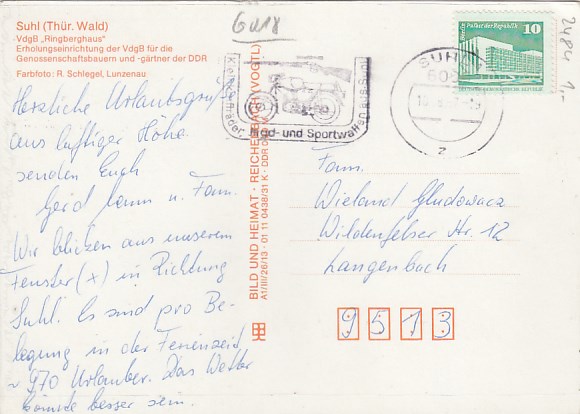 Suhl (Thür. Wald)
VdgB „Ringberghaus"
Erholungseinrichtung der VdgB für die
Genossenschaftsbauern und -gärtner der DDR
Farbfoto: R. Schlegel, Lunzenau
6018
Herzliche Urlaubsgrüße
aus luftiger Höhe
senden Euch
Gerd u. Fam.
Wir blicken aus unserem
Fenster (x) in Richtung
Suhl. Es sind pro Be-
legung in der Ferienzeit
~ 970 Urlauber. Das Wetter
könnte besser sein.
BILD UND HEIMAT · REICHENBACH (VOGTL)
A1/III/26/13 · 01 11 0438/31 K
Kleinkrafträder, Jagd- und Sportwaffen aus Suhl
SUHL
2
Palast der Republik
10
DEUTSCHE DEMOKRATISCHE REPUBLIK
2484 1.-
Fam.
Wieland Gludowacz
Wildenfelser Str. 12
Langenbach
9513